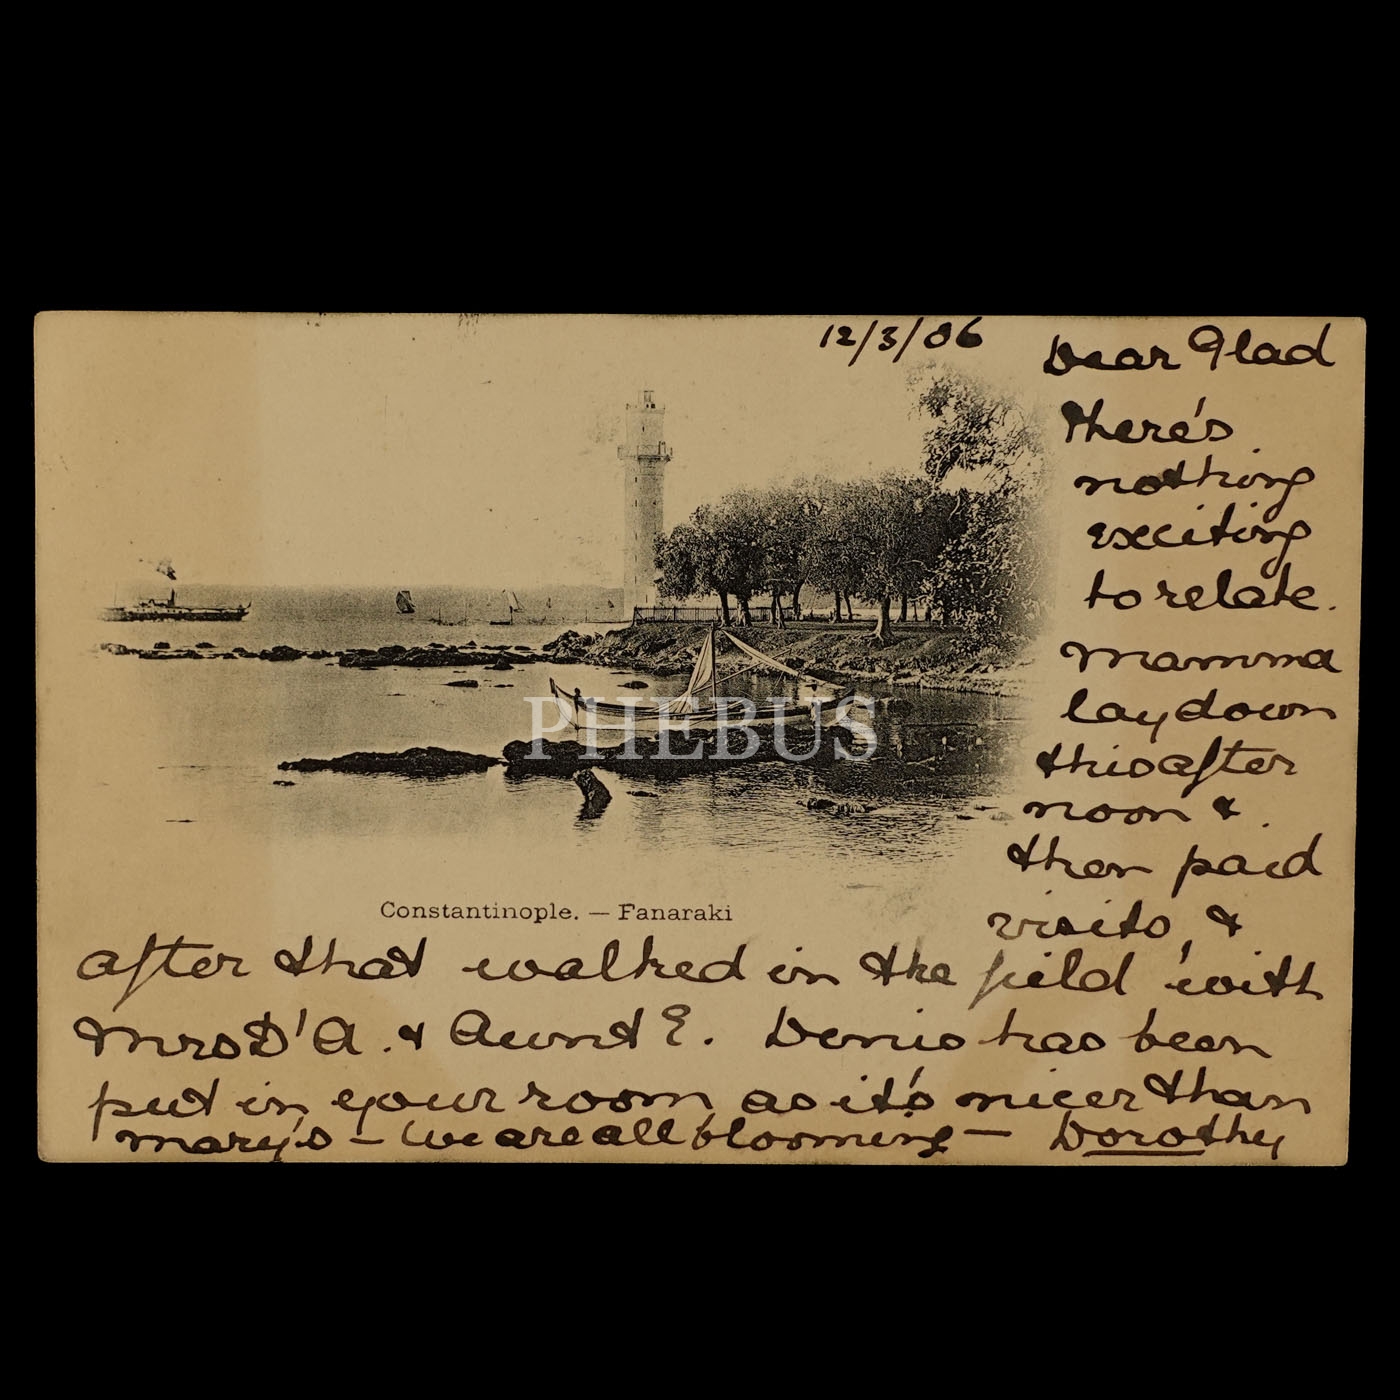 12/3/06
Dear Glad
There's
nothing
exciting
to relate.
Mamma
lay down
this after
noon &
then paid
visits, &
Constantinople. — Fanaraki
after that walked in the field with
Mrs D'A. & Aunt E. Denis has been
put in your room as it's nicer than
Mary's – We are all blooming – Dorothy
PHEBUS